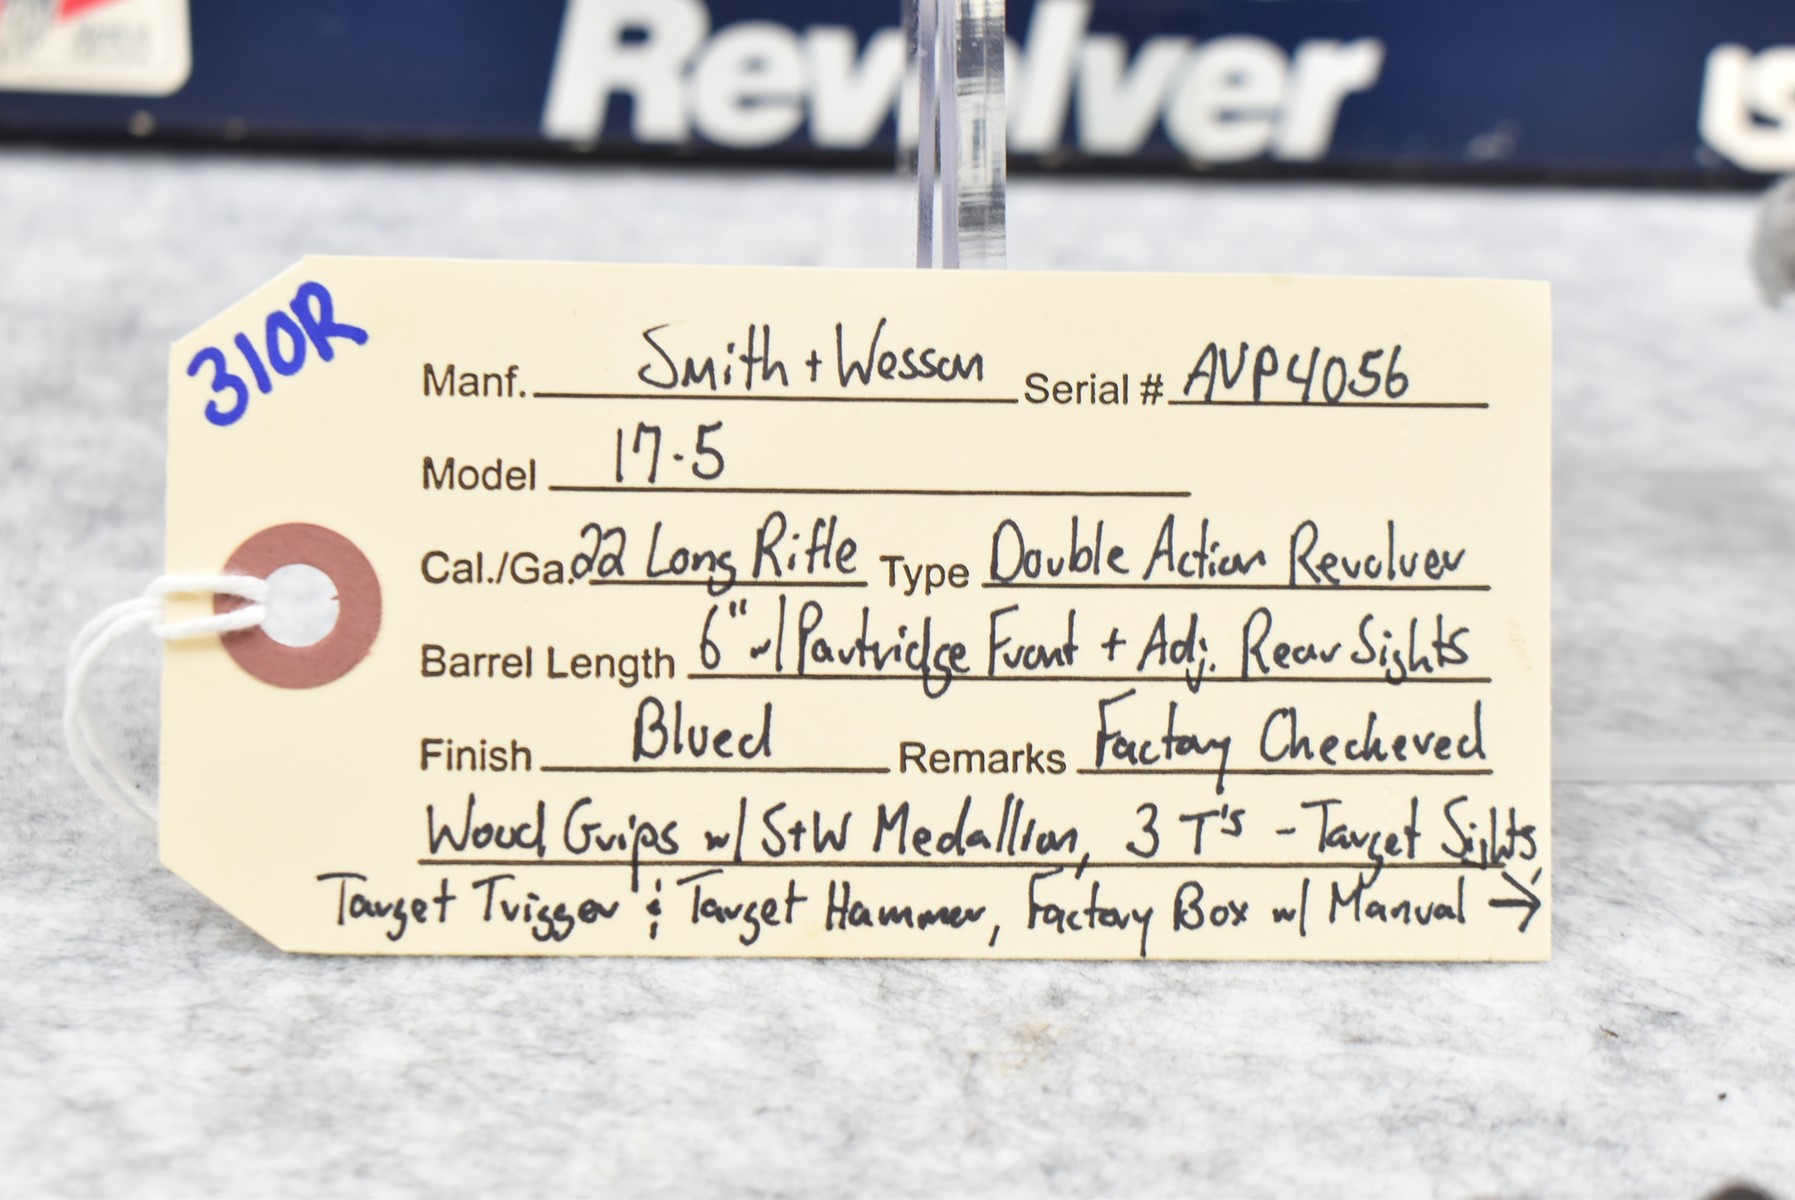 Revolver
US
310R
Manf. Smith + Wesson Serial # AVP4056
Model 17-5
Cal./Ga. 22 Long Rifle Type Double Action Revolver
Barrel Length 6" w/ Partridge Front + Adj. Rear Sights
Finish Blued Remarks Factory Checkered
Wood Grips w/ S+W Medallion, 3 T's - Target Sights,
Target Trigger & Target Hammer, Factory Box w/ Manual →